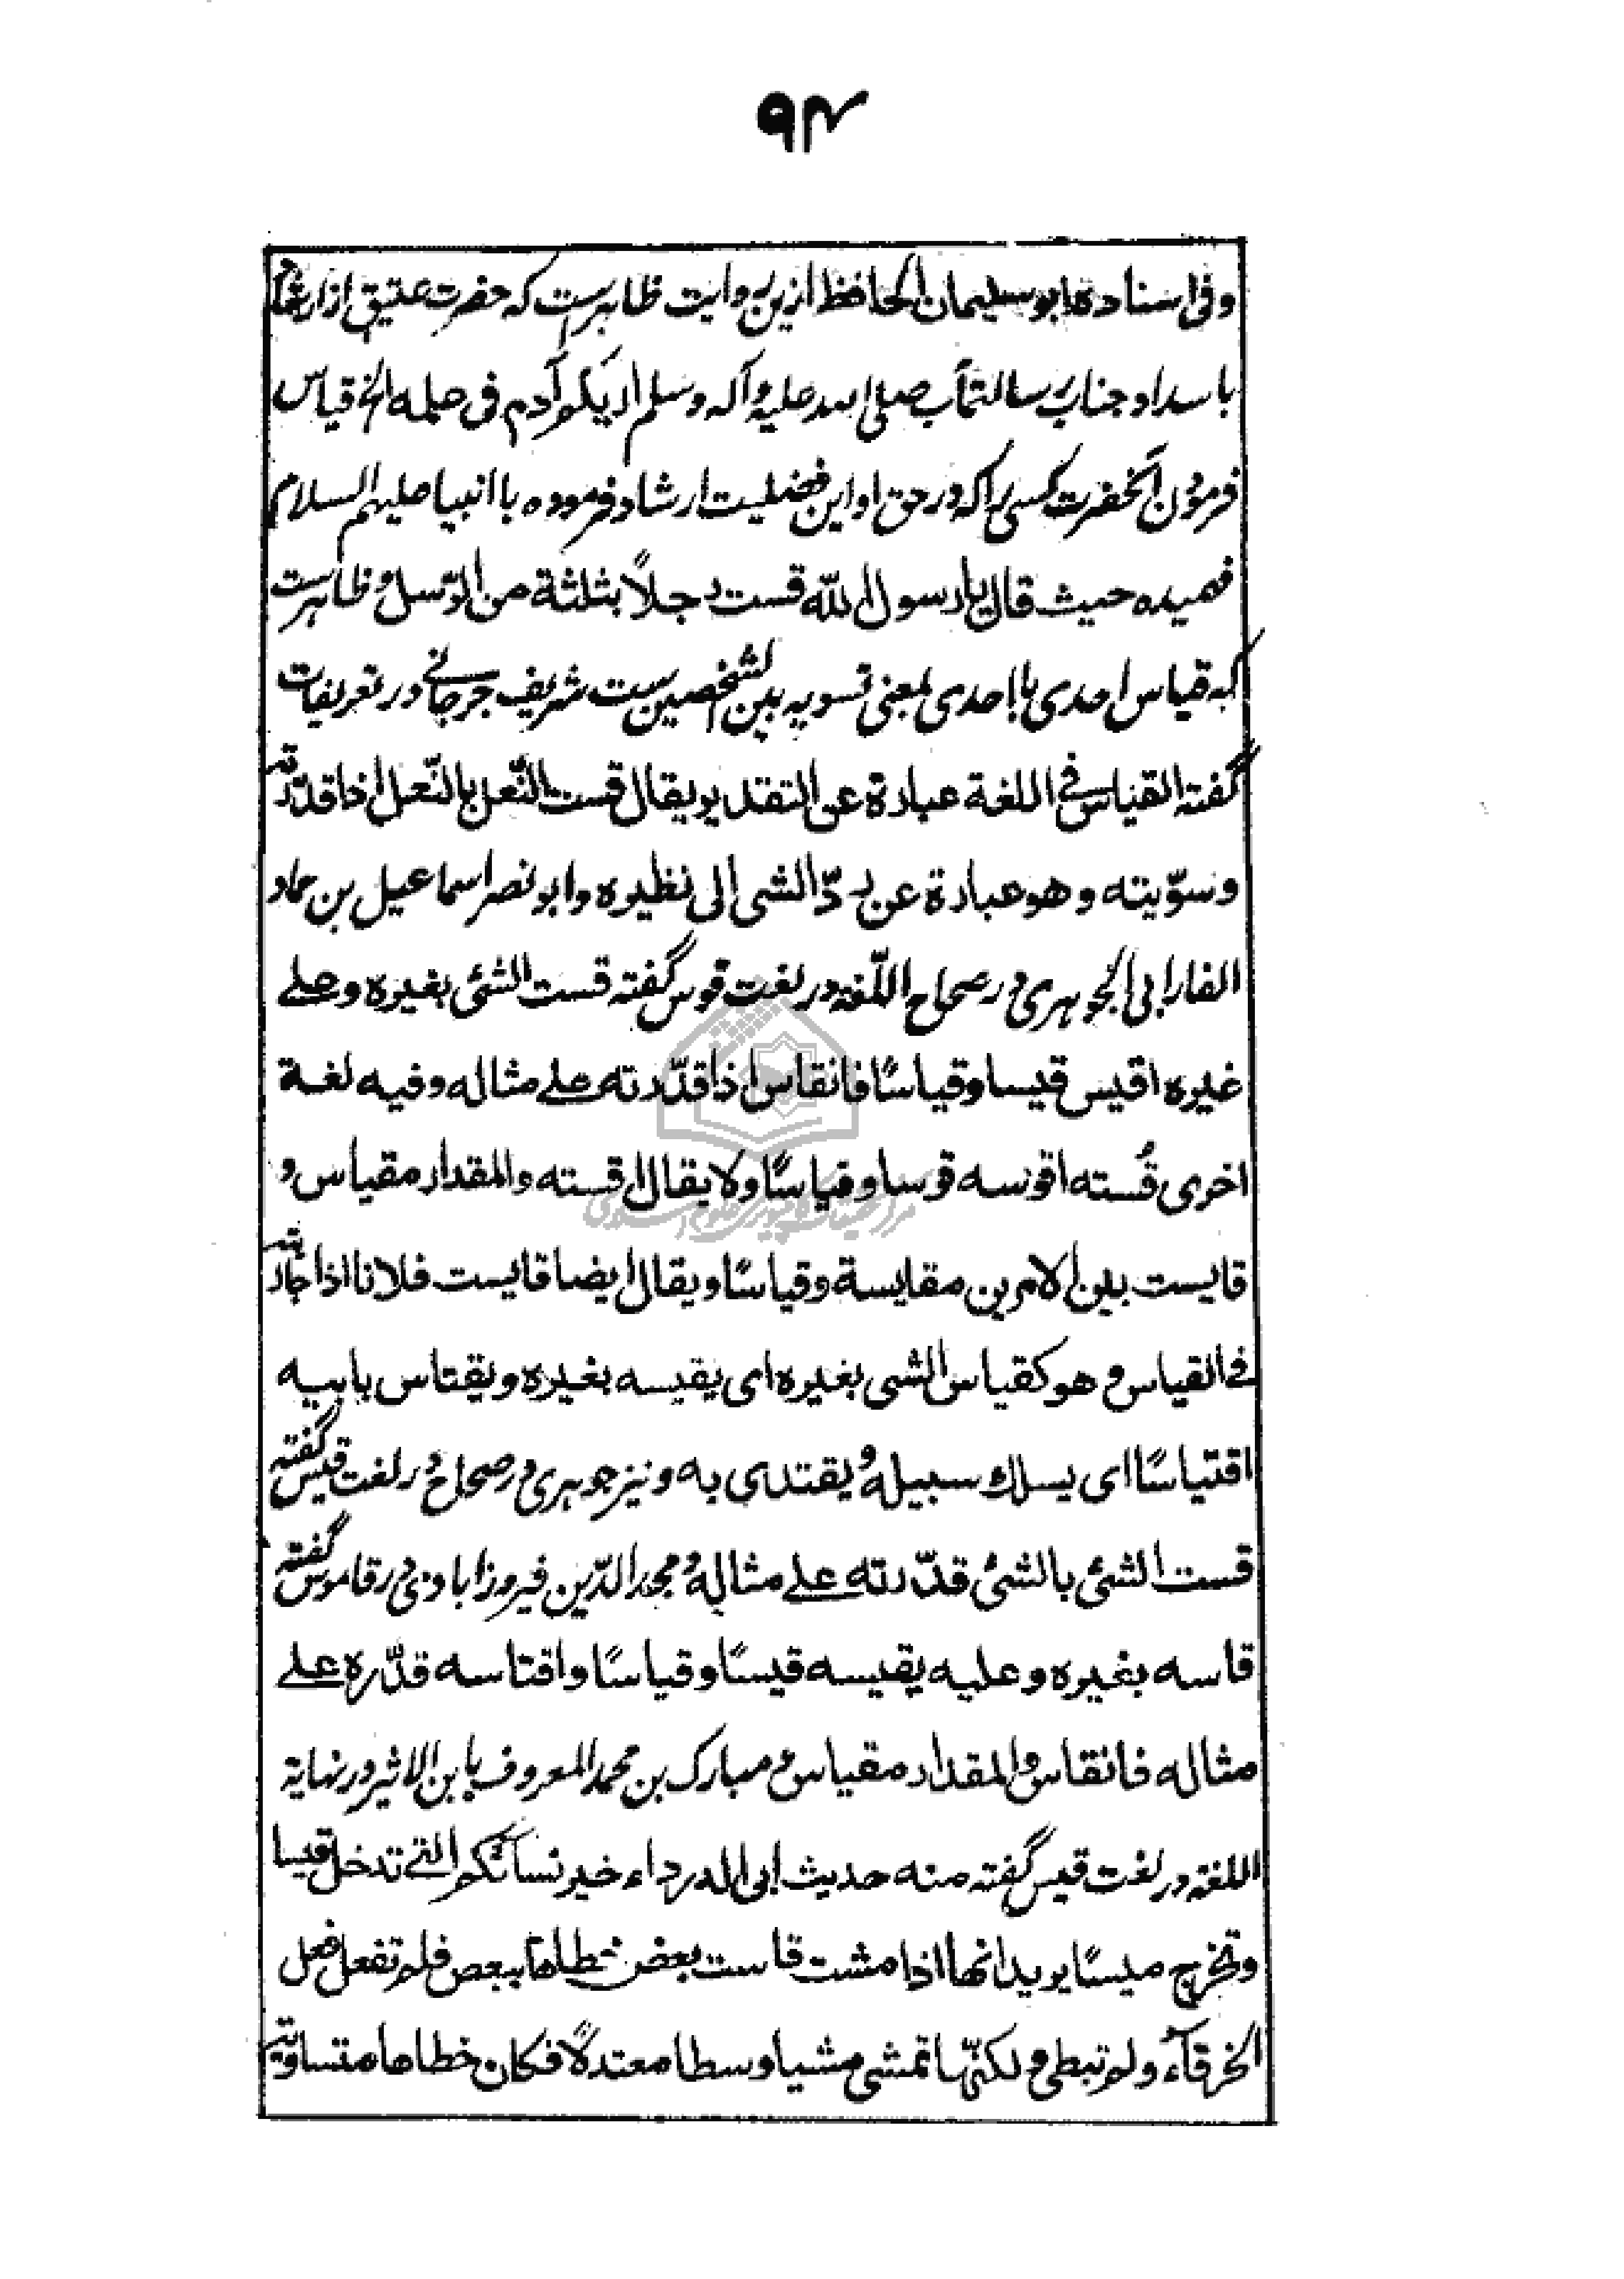 ۹۴
وفی اسناده ابو سلیمان الحافظ ازین روایت ظاهرست که حضرت عتیق از ارشاد
باسداد جناب رسالتمآب صلی الله علیه وآله وسلم اریکم آدم فی حلمه الخ قیاس
فرمودن آنحضرت کسی را که در حق او این فضلیت ارشاد فرموده با انبیا علیهم السلام
فهمیده حیث قال یا رسول الله قست رجلاً بثلثة من الرّسل و ظاهرست
که قیاس احدی با احدی بمعنی تسویه بین الشخصین ست شریف جرجانے در تعریفات
گفته القیاس فی اللغة عبارة عن التقدیر یقال قست النّعل بالنّعل اذا قدّرته
وسوّیته وهو عبارة عن ردّ الشی الی نظیره وابو نصر اسماعیل بن حماد
الفارابی الجوهری در صحاح اللّغه در لغت قوس گفته قست الشئ بغیره وعلے
غیره اقیس قیسا وقیاسًا فانقاس اذا قدّرته علے مثاله وفیه لغة
اخری قُسته اقوسه قوسا وقیاسًا ولا یقال اقسته والمقدار مقیاس و
قایست بین الامرین مقایسة وقیاسًا ویقال ایضا قایست فلانا اذا جاریته
فے القیاس و هو کقیاس الشی بغیره ای یقیسه بغیره ویقتاس بابیه
اقتیاسًا ای یسلك سبیله و یقتدی به ونیز جوهری در صحاح در لغت قیس گفته
قست الشئ بالشئ قدّرته علے مثاله و مجد الدّین فیروزابادی در قاموس گفته
قاسه بغیره وعلیه یقیسه قیسًا وقیاسًا واقتاسه قدّره علے
مثاله فانقاس والمقدار مقیاس و مبارک بن محمد المعروف بابن الاثیر در نهایة
اللغة در لغت قیس گفته منه حدیث ابی الدرداء خیر نسائکم التے تدخل قیسا
وتخرج میسًا یرید انها اذا مشت قاست بعض خطاها ببعض فلم تفعل فعل
الخرقآء ولم تبطئ و لکنّها تمشی مشیا وسطا معتدلًا فکان خطاها متساویة